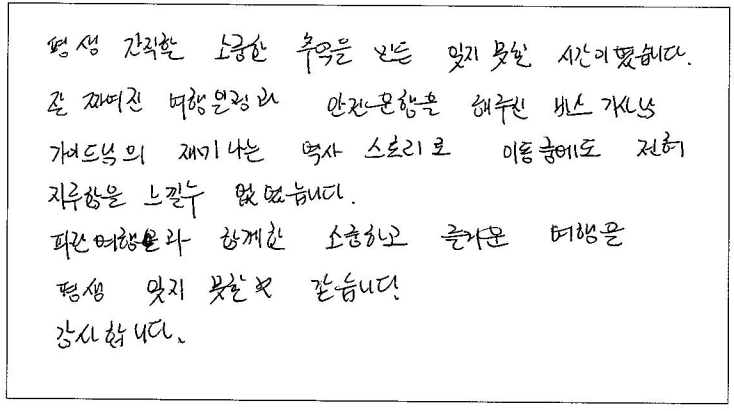 평생 간직할 소중한 추억을 만든 잊지 못할 시간이였습니다.
잘 짜여진 여행일정과 안전운행을 해주신 버스 기사님
가이드님의 재미나는 역사 스토리로 이동중에도 전혀
지루함을 느낄수 없었습니다.
파란여행과 함께한 소중하고 즐거운 여행을
평생 잊지 못할 것 같습니다
감사합니다.